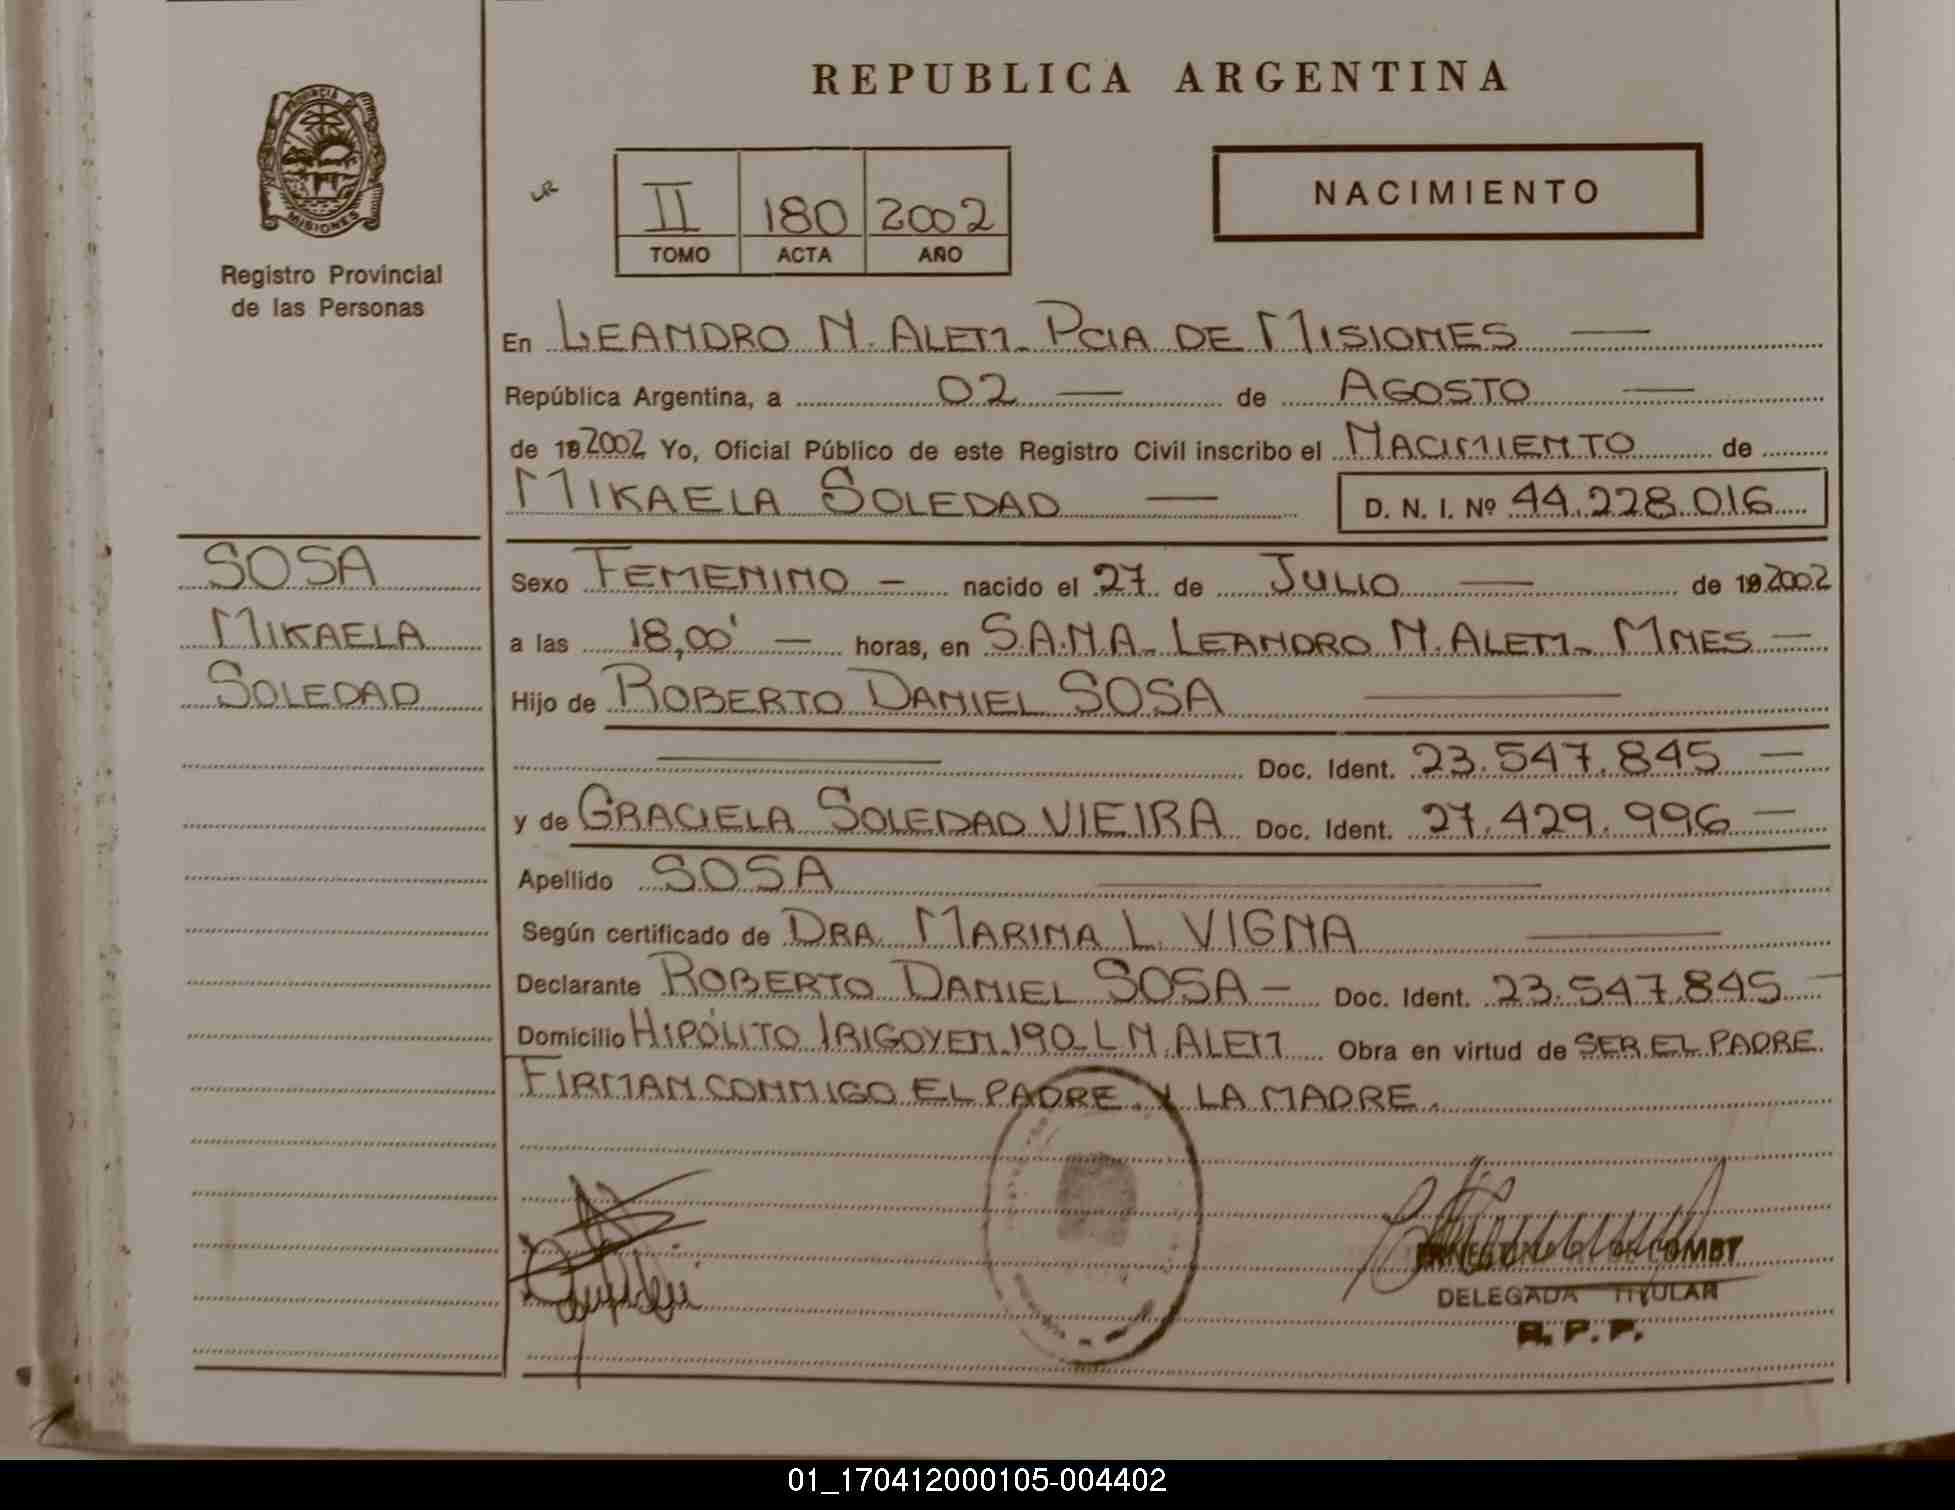 REPUBLICA ARGENTINA
PROVINCIA DE
MISIONES
Registro Provincial
de las Personas
II 180 2002
TOMO ACTA AÑO
NACIMIENTO
En LEANDRO N. ALEM - PCIA DE MISIONES
República Argentina, a 02 de AGOSTO
de 19 2002 Yo, Oficial Público de este Registro Civil inscribo el NACIMIENTO de
MIKAELA SOLEDAD D. N. I. Nº 44.228.016
SOSA
MIKAELA
SOLEDAD
Sexo FEMENINO - nacido el 27 de JULIO de 19 2002
a las 18,00' horas, en S.A.M.A - LEANDRO N. ALEM - MNES -
Hijo de ROBERTO DANIEL SOSA
Doc. Ident. 23.547.845
y de GRACIELA SOLEDAD VIEIRA Doc. Ident. 27.429.996
Apellido SOSA
Según certificado de DRA. MARINA L. VIGNA
Declarante ROBERTO DANIEL SOSA - Doc. Ident. 23.547.845
Domicilio HIPÓLITO IRIGOYEN 190 - L N. ALEM Obra en virtud de SER EL PADRE.
FIRMAN CONMIGO EL PADRE Y LA MADRE.
DELEGADA TITULAR
R. P. P.
01_170412000105-004402